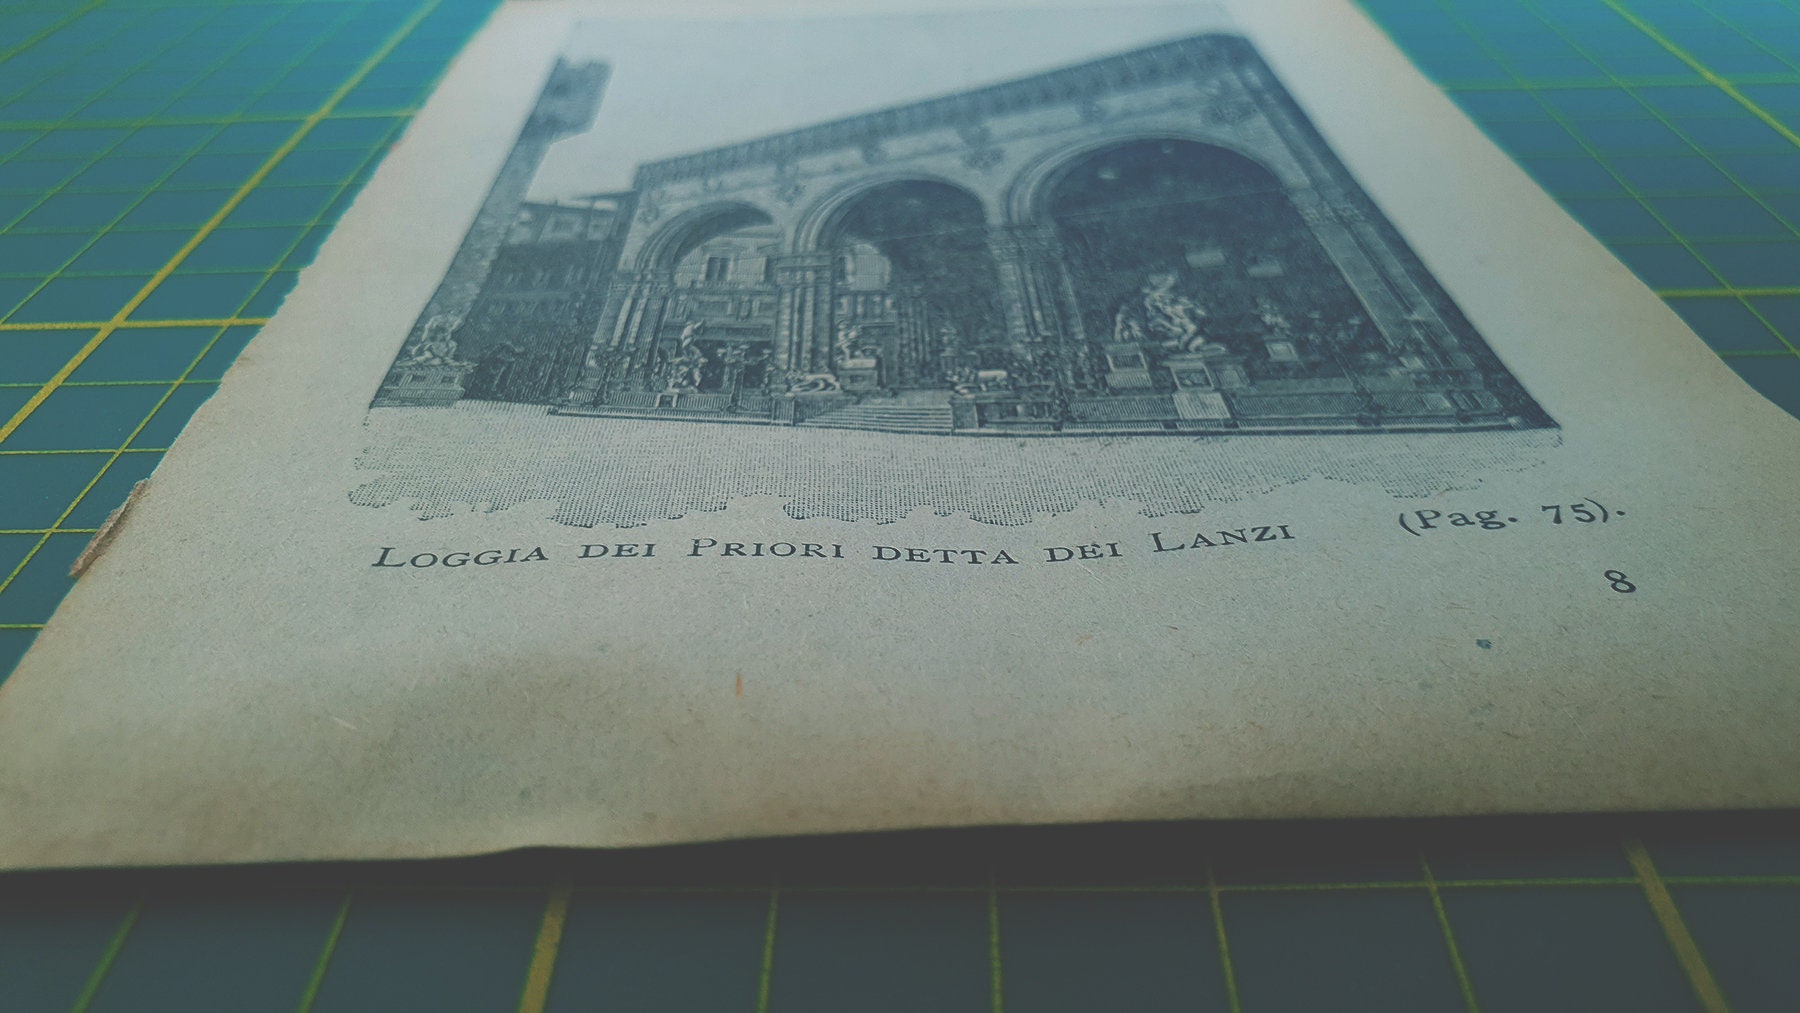 Loggia dei Priori detta dei Lanzi (Pag. 75).
8